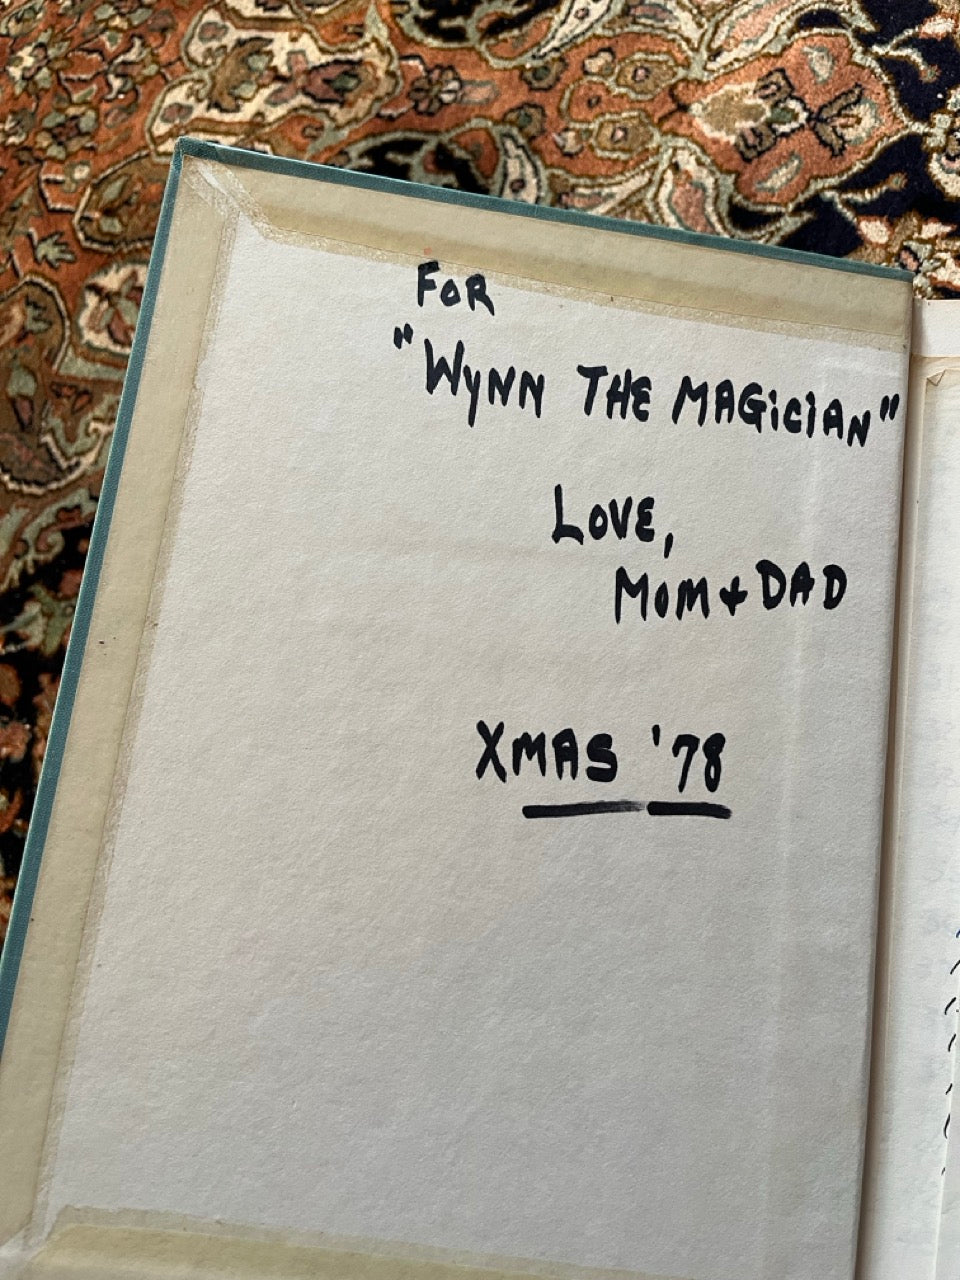 FOR
"WYNN THE MAGiCiAN"
LOVE,
MOM + DAD
XMAS '78